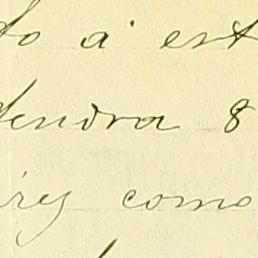 to á est
tendra 8
irey como